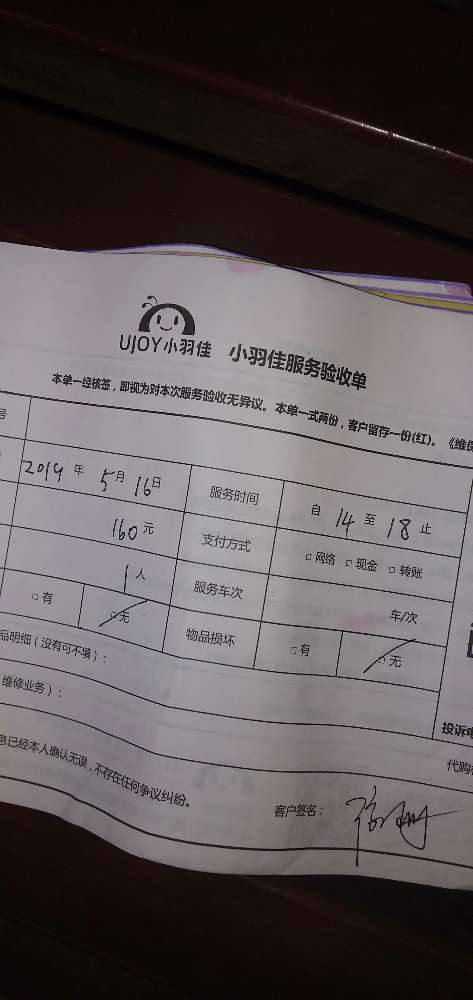 UJOY小羽佳 小羽佳服务验收单
本单一经核签，即视为对本次服务验收无异议。本单一式两份，客户留存一份(红)。《维保
号
2019 年 5 月 16 日 服务时间 自 14 至 18 止
160 元 支付方式 □ 网络 □ 现金 □ 转账
1 人 服务车次 车/次
□ 有 □ 无 物品损坏 □ 有 □ 无
品明细（没有可不填）：
维修业务）： 投诉电
代购
息已经本人确认无误，不存在任何争议纠纷。 客户签名：